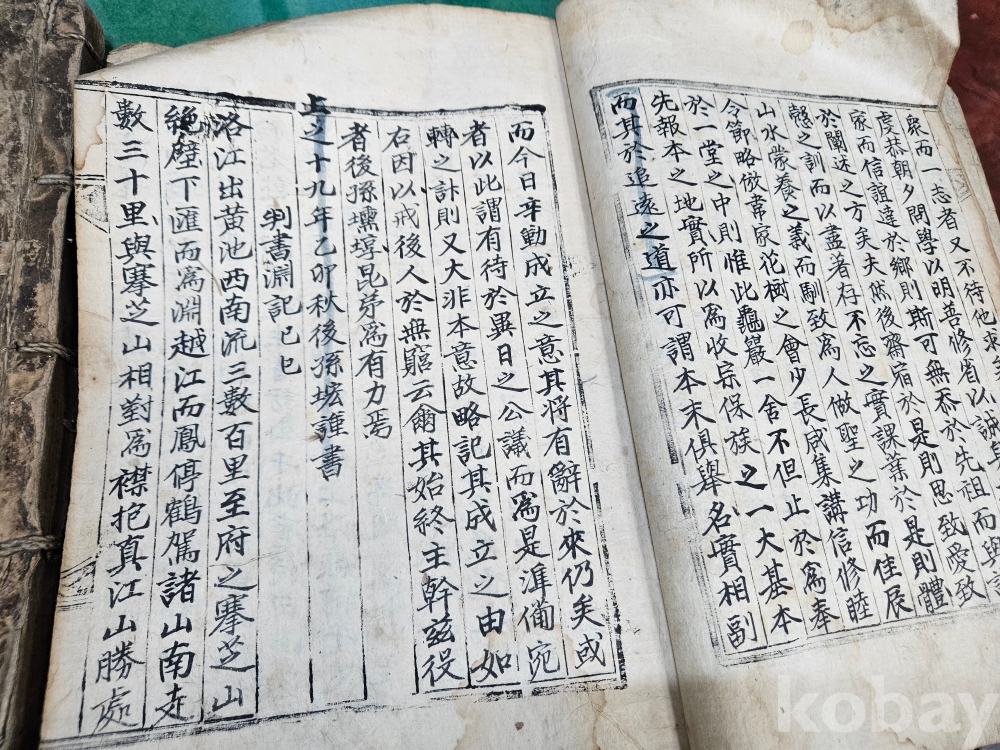 衆而一志者又不待他求
虔恭朝夕問學以明善修省以誠身
家而信誼達於鄉則斯可無忝於先祖而與
於闡述之方矣夫然後齋宿於是則思致愛致
慤之訓而以盡著存不忘之實課業於是則體
山水蒙養之義而馴致爲人做聖之功而佳辰
令節略倣韋家花樹之會少長咸集講信修睦
於一堂之中則惟此龜巖一舍不但止於爲奉
先報本之地實所以爲收宗保族之一大基本
而其於追遠之道亦可謂本末俱舉名實相副
而今日辛勤成立之意其將有辭於來仍矣或
者以此謂有待於異日之公議而爲是準備宛
轉之計則又大非本意故略記其成立之由如
右因以戒後人於無窮云爾其始終主幹兹役
者後孫壎㙉昆弟爲有力焉
上之十九年乙卯秋後孫㙆謹書
判書淵記 己巳
洛江出黃池西南流三數百里至府之搴芝山
絶壁下匯而爲淵越江而鳳停鶴駕諸山南走
數三十里與搴芝山相對爲襟抱真江山勝處
kobay